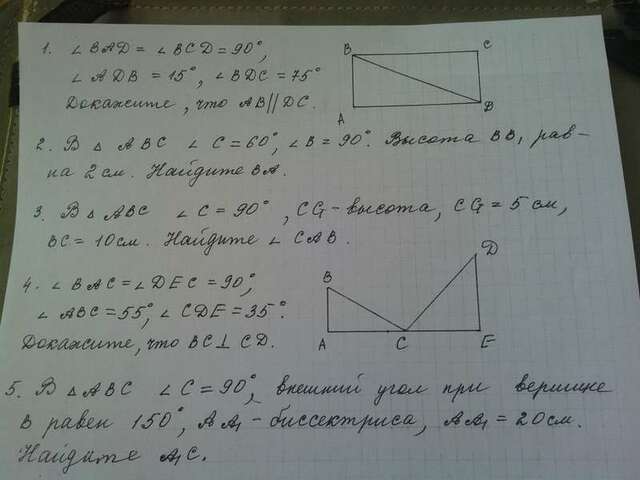 1. ∠BAD = ∠BCD = 90°,
∠ADB = 15°, ∠BDC = 75°
Докажите, что AB || DC.
B
C
A
B
2. В △ ABC ∠C = 60°, ∠B = 90°. Высота BB₁ рав-
на 2 см. Найдите BA.
3. В △ ABC ∠C = 90°, CG - высота, CG = 5 см,
BC = 10 см. Найдите ∠CAB.
4. ∠BAC = ∠DEC = 90°,
∠ABC = 55°, ∠CDE = 35°.
Докажите, что BC ⊥ CD.
B
D
A
C
E
5. В △ ABC ∠C = 90°, внешний угол при вершине
B равен 150°, AA₁ - биссектриса, AA₁ = 20 см.
Найдите A₁C.